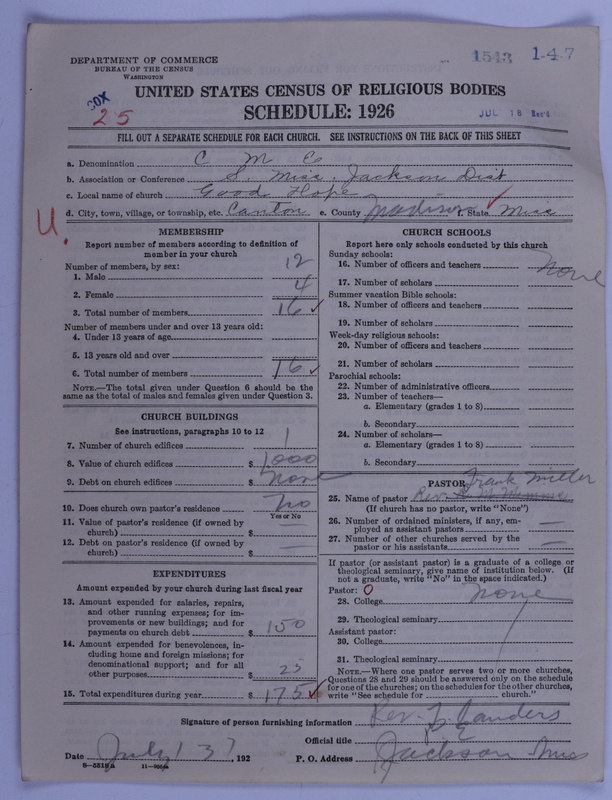 DEPARTMENT OF COMMERCE
BUREAU OF THE CENSUS
WASHINGTON
1543
1-4-7
COX
25
UNITED STATES CENSUS OF RELIGIOUS BODIES
SCHEDULE: 1926
JUL 18 Rec'd
FILL OUT A SEPARATE SCHEDULE FOR EACH CHURCH. SEE INSTRUCTIONS ON THE BACK OF THIS SHEET
a. Denomination C M E
b. Association or Conference S. Miss. Jackson Dist
c. Local name of church Good Hope
d. City, town, village, or township, etc. Canton e. County Madison f. State Miss
U.
MEMBERSHIP
Report number of members according to definition of
member in your church
Number of members, by sex:
1. Male 12
2. Female 4
3. Total number of members 16
Number of members under and over 13 years old:
4. Under 13 years of age
5. 13 years old and over
6. Total number of members 16
NOTE.—The total given under Question 6 should be the
same as the total of males and females given under Question 3.
CHURCH BUILDINGS
See instructions, paragraphs 10 to 12
7. Number of church edifices 1
8. Value of church edifices $ 1000
9. Debt on church edifices $ none
10. Does church own pastor's residence No
Yes or No
11. Value of pastor's residence (if owned by
church) $
12. Debt on pastor's residence (if owned by
church) $ —
EXPENDITURES
Amount expended by your church during last fiscal year
13. Amount expended for salaries, repairs,
and other running expenses; for im-
provements or new buildings; and for
payments on church debt $ 150
14. Amount expended for benevolences, in-
cluding home and foreign missions; for
denominational support; and for all
other purposes $ 25
15. Total expenditures during year $ 175
CHURCH SCHOOLS
Report here only schools conducted by this church
Sunday schools:
16. Number of officers and teachers none
17. Number of scholars
Summer vacation Bible schools:
18. Number of officers and teachers
19. Number of scholars
Week-day religious schools:
20. Number of officers and teachers
21. Number of scholars
Parochial schools:
22. Number of administrative officers
23. Number of teachers—
a. Elementary (grades 1 to 8)
b. Secondary
24. Number of scholars—
a. Elementary (grades 1 to 8)
b. Secondary
PASTOR Frank Miller
25. Name of pastor Rev.
(If church has no pastor, write "None")
26. Number of ordained ministers, if any, em-
ployed as assistant pastors —
27. Number of other churches served by the
pastor or his assistants —
If pastor (or assistant pastor) is a graduate of a college or
theological seminary, give name of institution below. (If
not a graduate, write "No" in the space indicated.)
Pastor: 0
28. College none
29. Theological seminary
Assistant pastor:
30. College
31. Theological seminary
NOTE.—Where one pastor serves two or more churches,
Questions 28 and 29 should be answered only on the schedule
for one of the churches; on the schedules for the other churches,
write "See schedule for church."
Signature of person furnishing information Rev.
Official title P. E
Date July 13, 192 P. O. Address Jackson Miss
8—5519a